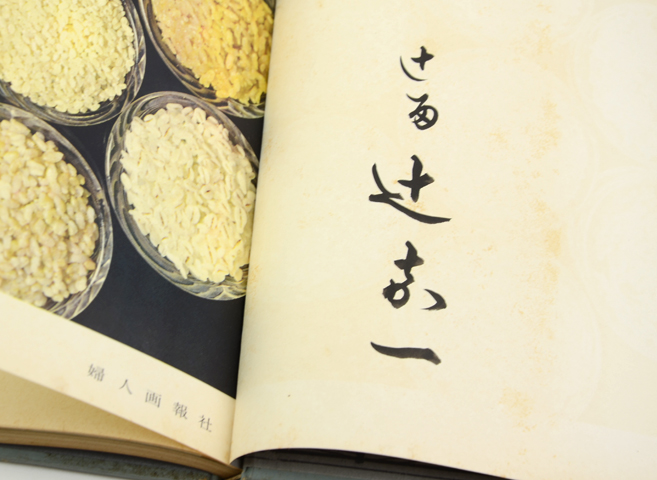 辻留 辻嘉一
婦人画報社